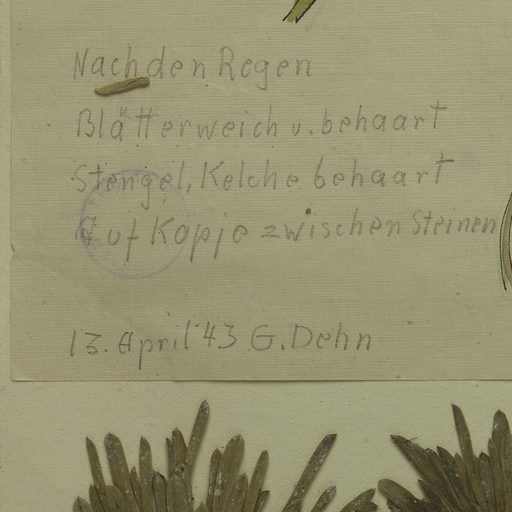 Nach den Regen
Blätter weich u. behaart
Stengel, Kelche behaart
Auf Kopje zwischen Steinen
13. April 43 G. Dehn